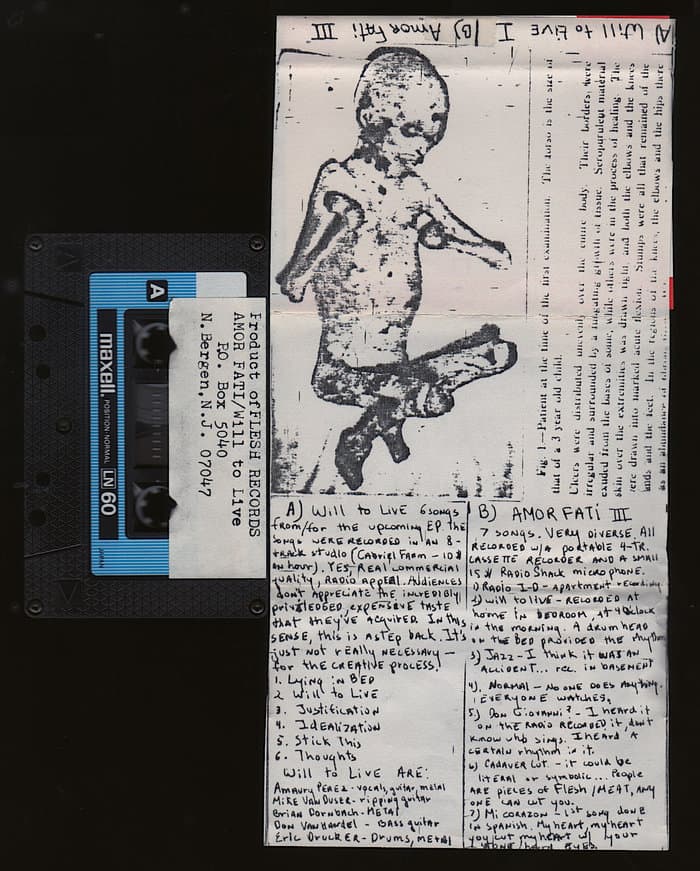 A) Will to LIVE I B) Amor Fati III
Fig 1—Patient at the time of the first examination. The torso is the size of
that of a 3 year old child.
Ulcers were distributed unevenly over the entire body. Their borders were
irregular and surrounded by a fungating growth of tissue. Seropurulent material
exuded from the bases of some, while others were in the process of healing. The
skin over the extremities was drawn tight, and both the elbows and the knees
were drawn into marked acute flexion. Stumps were all that remained of the
hands and the feet. In the regions of the knees, the elbows and the hips there
was an abundance of
A
maxell.
POSITION·NORMAL
LN 60
JAPAN
Product of FLESH RECORDS
AMOR FATI/Will to Live
P.O. Box 5040
N. Bergen, N.J. 07047
A) Will to LIVE 6 songs
from/for the upcoming EP. The
songs were recorded in an 8-
track studio (Gabriel Farm - 10$
an hour). YES, Real commercial
quality, Radio appeal. Audiences
don't appreciate the incredibly
priviledged, expensive taste
that they've acquired. In this
sense, this is a step back. It's
just not really necessary —
for the creative process.
1. Lying in BED
2 Will to Live
3. Justification
4. Idealization
5. Stick This
6. Thoughts
Will to Live ARE:
Amaury Perez - vocals, guitar, metal
Mike Van Duser - ripping guitar
Brian Dornbach - METAL
Don Vanhandel - Bass guitar
Eric Drucker - Drums, metal
B) AMOR FATi III
7 songs. Very diverse. All
recorded w/a portable 4-TR.
cassette recorder and a small
15$ Radio Shack microphone.
1) Radio I-D - apartment recording.
2) Will to live - recorded at
home in bedroom, at 4 o'clock
in the morning. A drum head
on the bed provided the rhythm
3) JAZZ - I think it was an
accident... rec. in basement
4). Normal - no one does anything.
Everyone watches.
5) Don Giovanni? - I heard it
on the radio recorded it, don't
know who sings. I heard a
certain rhythm in it.
6) Cadaver Cut - it could be
literal or symbolic... People
are pieces of Flesh/MEAT, any
one can cut you.
7) Mi corazon - 1st song done
in Spanish. My heart, my heart
you cut my heart w/ your
stone hard eyes.